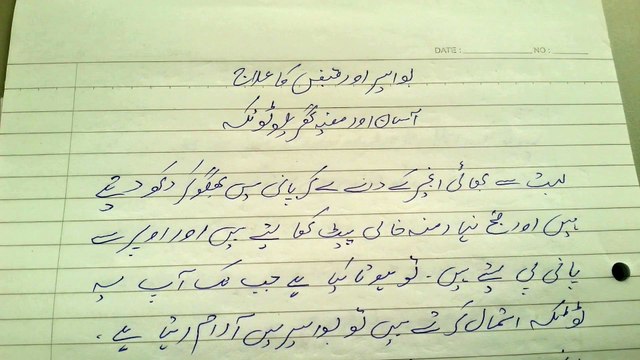 DATE: NO:
بواسیر اور قبض کا علاج
آسان اور مفید گھریلو ٹوٹکہ
بہت سے بھائی انجیر کے دانے لے کر پانی میں بھگو کر رکھ دیتے
ہیں اور صبح نہار منہ خالی پیٹ کھا لیتے ہیں اور اوپر سے
پانی پی لیتے ہیں۔ تو ہوتا کیا ہے جب تک آپ یہ
ٹوٹکہ استمال کرتے ہیں تو بواسیر میں آرام رہتا ہے۔